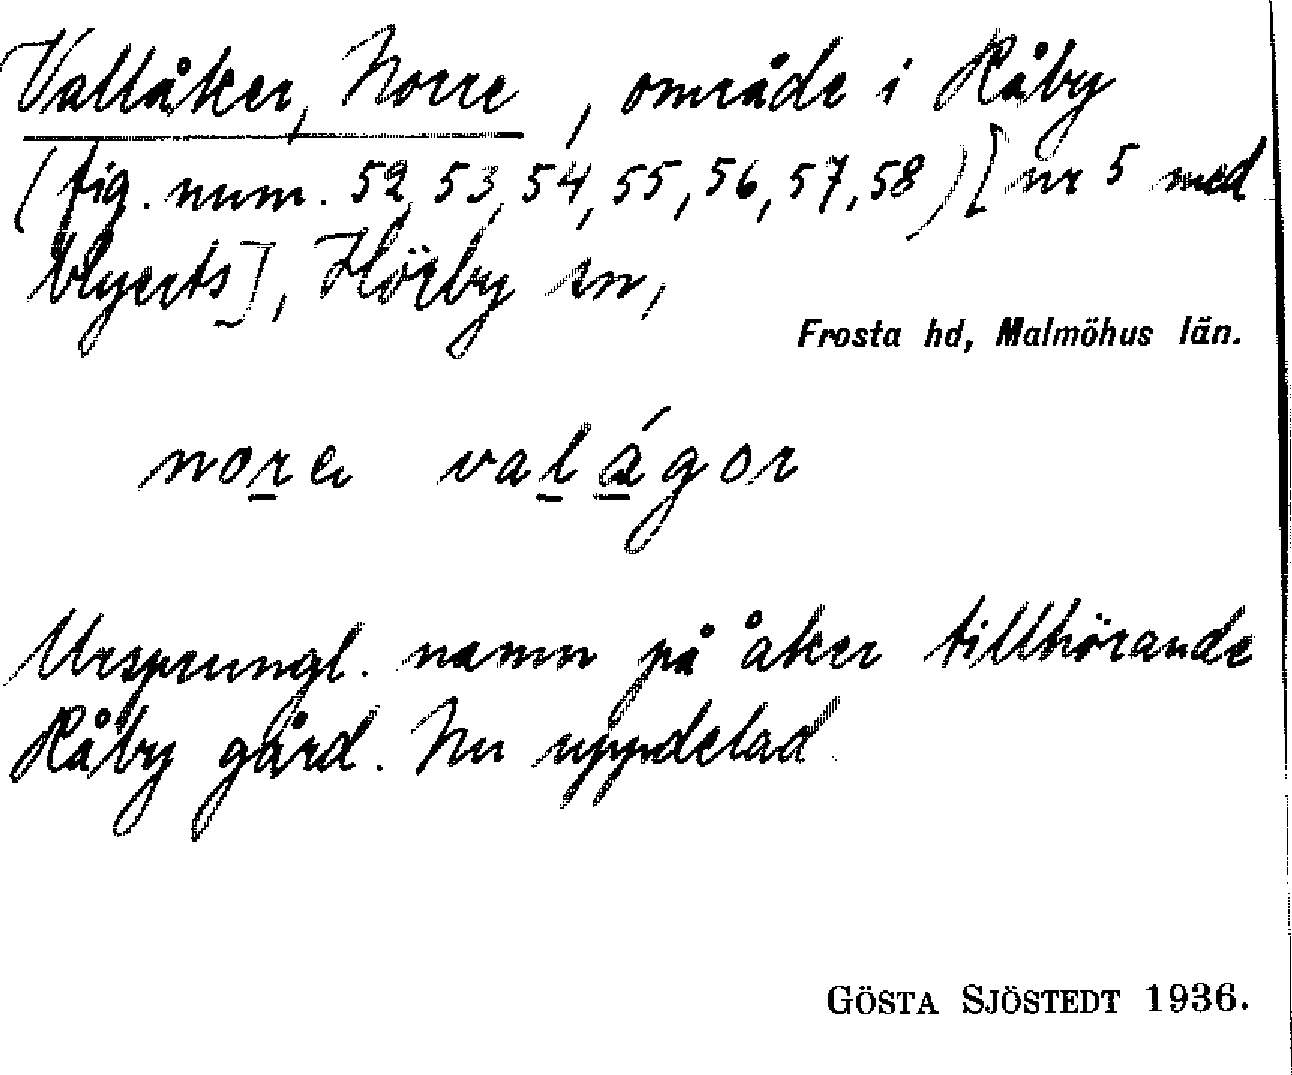 Vallåker, Norre, område i Råby
(fig. num. 52, 53, 54, 55, 56, 57, 58) [nr 5 med
blyerts], Hörby sn,
Frosta hd, Malmöhus län.
nore valágor
Ursprungl. namn på åker tillhörande
Råby gård. Nu uppdelad.
GÖSTA SJÖSTEDT 1936.